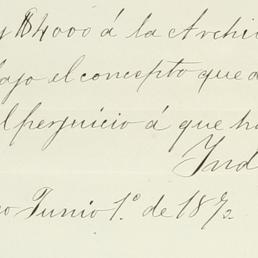 y $4000 á la Archi
bajo el concepto que a
l perjuicio á que ha
Ind
o Junio 1.º de 1872